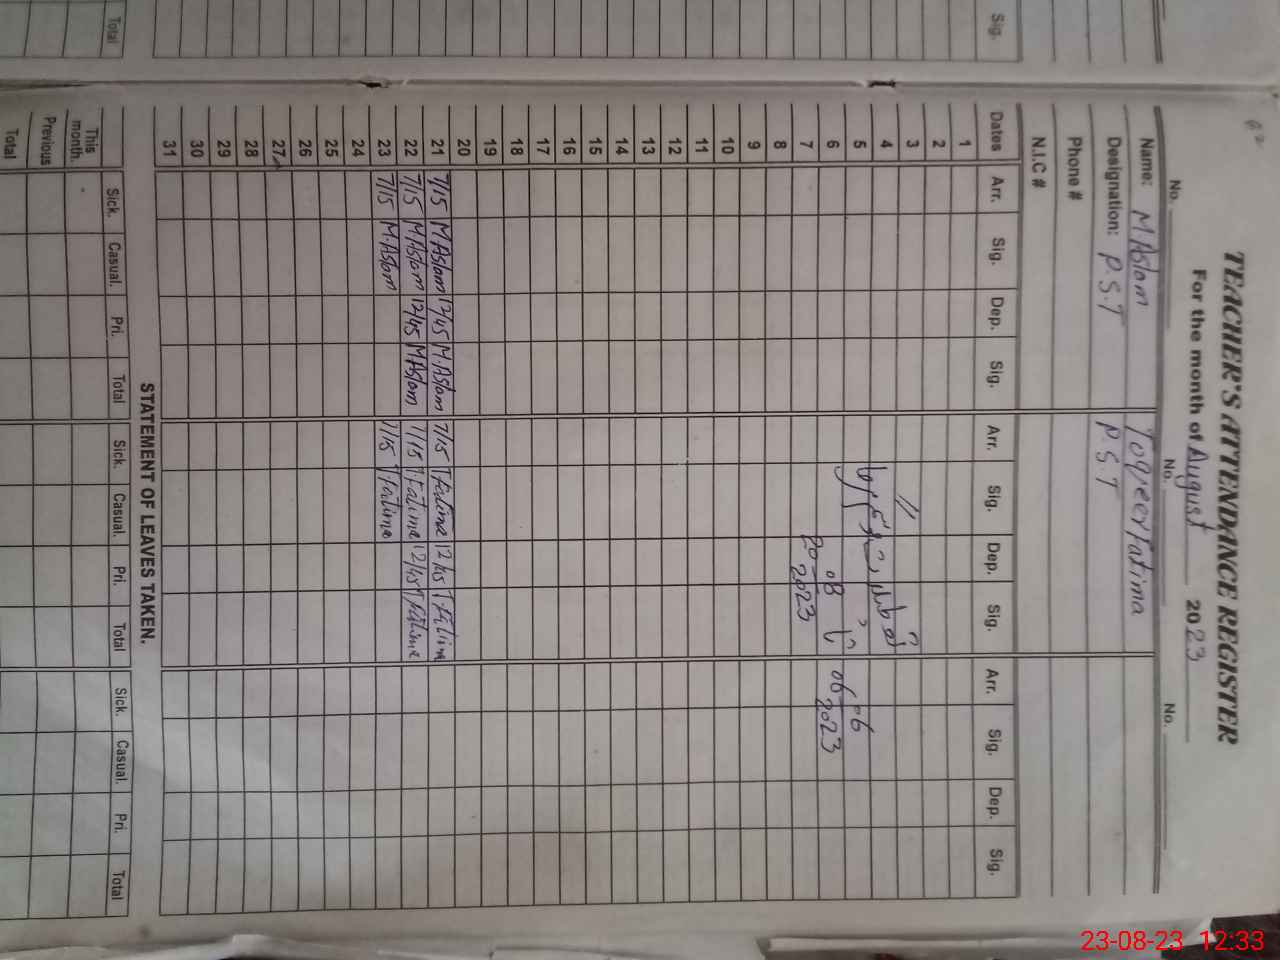 TEACHER'S ATTENDANCE REGISTER
For the month of August 2023
No. No. No.
Name: M Aslam Toqeer Fatima
Designation: P.S.T P.S.T
Phone #
N.I.C #
Dates Arr. Sig. Dep. Sig. Arr. Sig. Dep. Sig. Arr. Sig. Dep. Sig.
1
2
3
4
5 06-06
6 08 06 2023
7 20 2023
8
9
10
11
12
13
14
15
16
17
18
19
20
21 7/15 M Aslam 12/45 M. Aslam 7/15 T Fatima 12/45 T Fatima
22 7/15 M Aslam 12/45 M Aslam 7/15 T Fatima 12/45 T Fatima
23 7/15 M. Aslam 7/15 T Fatima
24
25
26
27
28
29
30
31
STATEMENT OF LEAVES TAKEN.
Sick. Casual. Pri. Total Sick. Casual. Pri. Total Sick. Casual. Pri. Total
This month.
Previous
Total
Sig.
Total
23-08-23 12:33